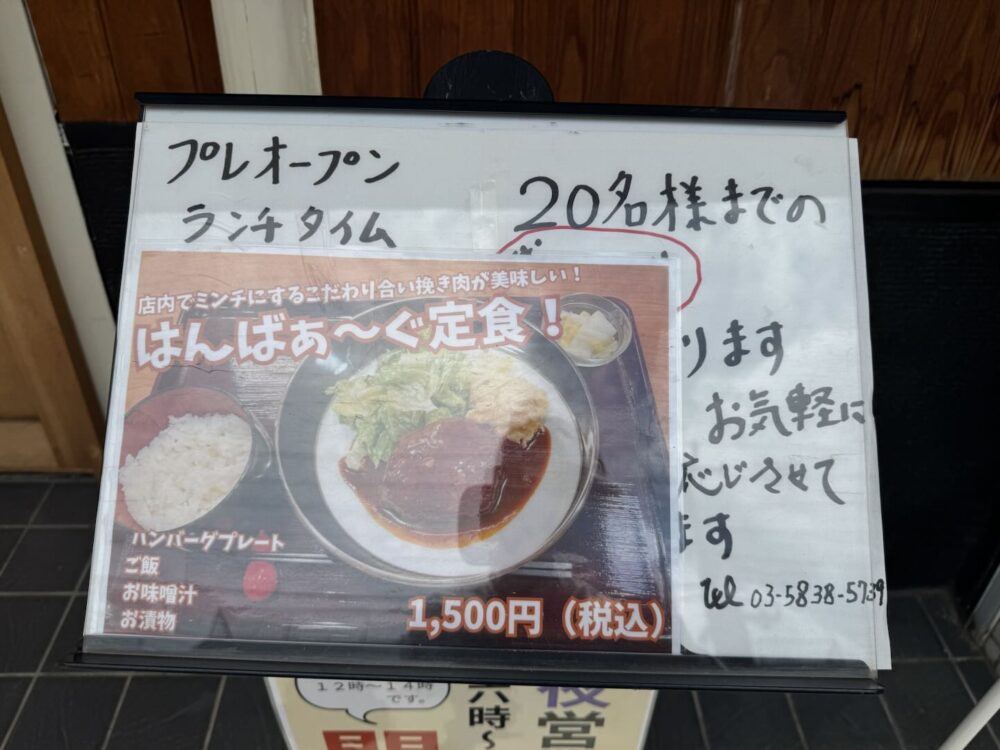 プレオープン
ランチタイム
20名様までの
ります
お気軽に
応じさせて
ます
Tel 03-5838-5739
店内でミンチにするこだわり合い挽き肉が美味しい!
はんばぁ〜ぐ定食!
ハンバーグプレート
ご飯
お味噌汁
お漬物
1,500円(税込)
12時〜14時
です。
六時〜
夜営